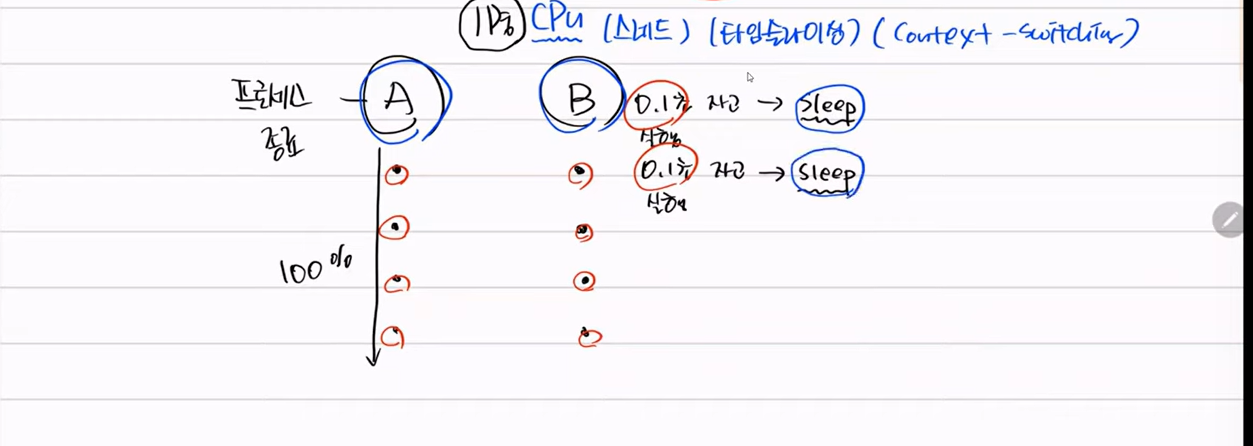 CPU (스피드) (타임슬라이싱) (Context-Switching)
프로세스 A B 0.1초 자고 → Sleep
종료 실행
0.1초 자고 → Sleep
실행
100%